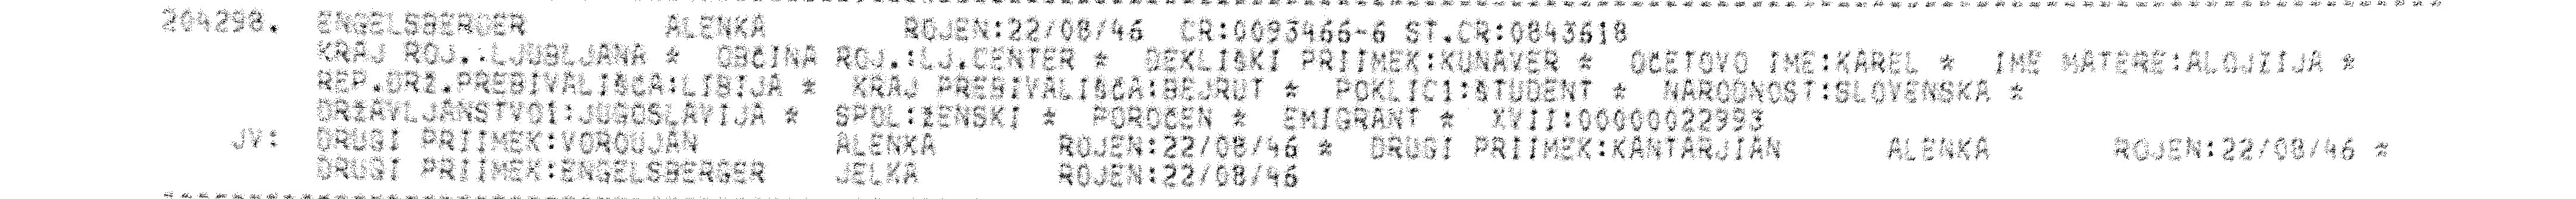 204298. ENGELSBERGER ALENKA ROJEN:22/08/46 CR:0093466-6 ST.CR:0843618
KRAJ ROJ.:LJUBLJANA * OBČINA ROJ.:LJ.CENTER * DEKLIŠKI PRIIMEK:KUNAVER * OČETOVO IME:KAREL * IME MATERE:ALOJZIJA *
REP.DRŽ.PREBIVALIŠČA:LIBIJA * KRAJ PREBIVALIŠČA:BEJRUT * POKLIC1:ŠTUDENT * NARODNOST:SLOVENSKA *
DRŽAVLJANSTVO1:JUGOSLAVIJA * SPOL:ŽENSKI * POROČEN * EMIGRANT * XVII:00000022993
JV: DRUGI PRIIMEK:VOROUJAN ALENKA ROJEN:22/08/46 * DRUGI PRIIMEK:KANTARJIAN ALENKA ROJEN:22/08/46 *
DRUGI PRIIMEK:ENGELSBERGER JELKA ROJEN:22/08/46